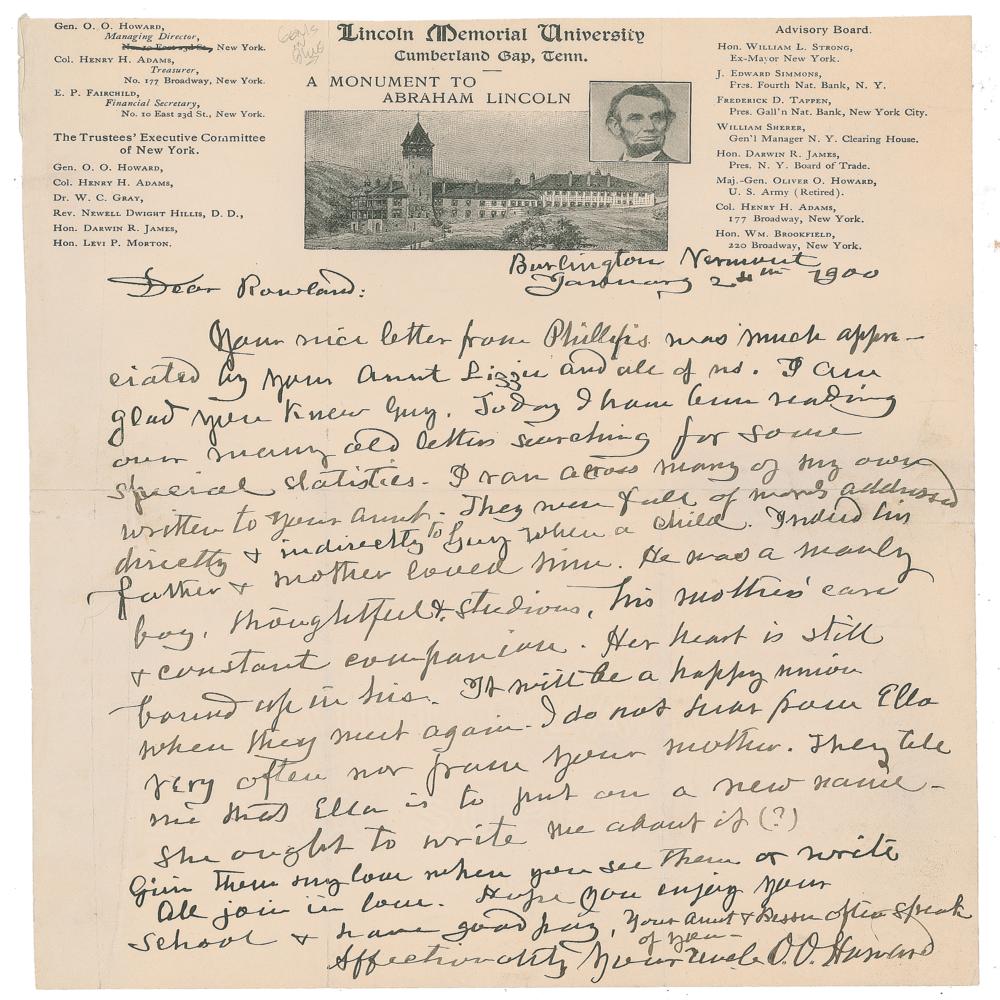 Gen. O. O. Howard,
Managing Director,
No. 10 East 23d St., New York.
Col. Henry H. Adams,
Treasurer,
No. 177 Broadway, New York.
E. P. Fairchild,
Financial Secretary,
No. 10 East 23d St., New York.
The Trustees' Executive Committee
of New York.
Gen. O. O. Howard,
Col. Henry H. Adams,
Dr. W. C. Gray,
Rev. Newell Dwight Hillis, D. D.,
Hon. Darwin R. James,
Hon. Levi P. Morton.
Lincoln Memorial University
Cumberland Gap, Tenn.
A MONUMENT TO
ABRAHAM LINCOLN
Advisory Board.
Hon. William L. Strong,
Ex-Mayor New York.
J. Edward Simmons,
Pres. Fourth Nat. Bank, N. Y.
Frederick D. Tappen,
Pres. Gall'n Nat. Bank, New York City.
William Sherer,
Gen'l Manager N. Y. Clearing House.
Hon. Darwin R. James,
Pres. N. Y. Board of Trade.
Maj.-Gen. Oliver O. Howard,
U. S. Army (Retired).
Col. Henry H. Adams,
177 Broadway, New York.
Hon. Wm. Brookfield,
220 Broadway, New York.
Burlington Vermont
January 24th 1900
Dear Rowland:
Your nice letter from Phillips was much appre-
ciated by your Aunt Lizzie and all of us. I am
glad you knew Guy. Today I have been reading
over many old letters searching for some
special statistics. I ran across many of my own
written to your aunt. They were full of words addressed
directly & indirectly to Guy when a child. Indeed his
father & mother loved him. He was a manly
boy, thoughtful & studious, his mother's care
& constant companion. Her heart is still
bound up in his. It will be a happy union
when they meet again. I do not hear from Ella
very often nor from your mother. They tell
me that Ella is to put on a new name -
she ought to write me about it (?)
Give them my love when you see them or write
All join in love. Hope you enjoy your
school & have good pay, Your Aunt & Bessie often speak
of you -
Affectionately Your uncle O. O. Howard